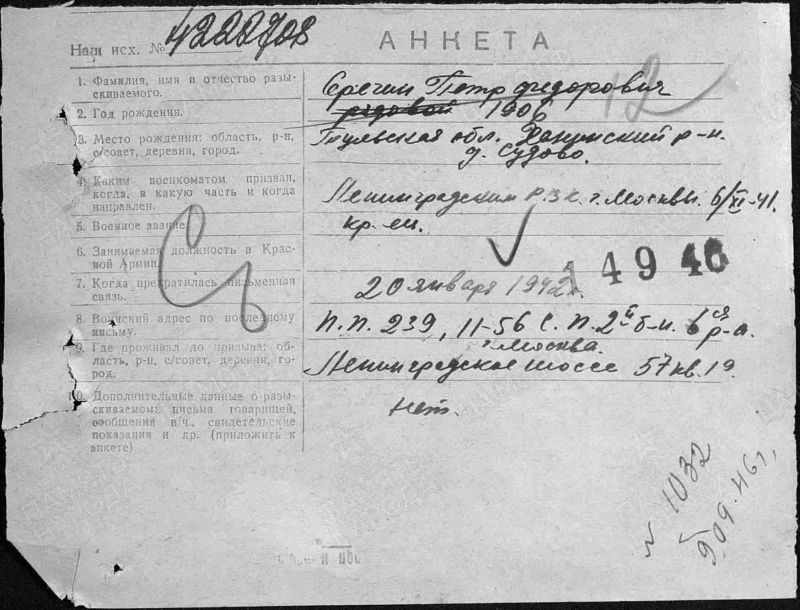 Наш исх. № 4222708
АНКЕТА
1. Фамилия, имя и отчество разы-
скиваемого.
Петр Федорович
2. Год рождения.
рядовой 1906
12
3. Место рождения: область, р-н,
с/совет, деревня, город.
Тульская обл. р-н.
д. Судово.
4. Каким военкоматом призван,
когда, в какую часть и когда
направлен.
Ленинградским Р.В.К. г. Москвы. 6/XI-41.
5. Военное звание.
кр-ец.
6. Занимаемая должность в Крас-
ной Армии.
149 46
7. Когда прекратилась письменная
связь.
20 января 1942 г.
8. Воинский адрес по последнему
письму.
П.П. 239, 11-56 С.П. 2й б-н. 6ся р-а.
9. Где проживал до призыва: об-
ласть, р-н, с/совет, деревня, го-
род.
г. Москва.
Ленинградское шоссе 57 кв. 19.
10. Дополнительные данные о разы-
скиваемом: письма товарищей,
сообщения в/ч., свидетельские
показания и др. (приложить к
анкете)
Нет.
N 1032
9/09.46 г.